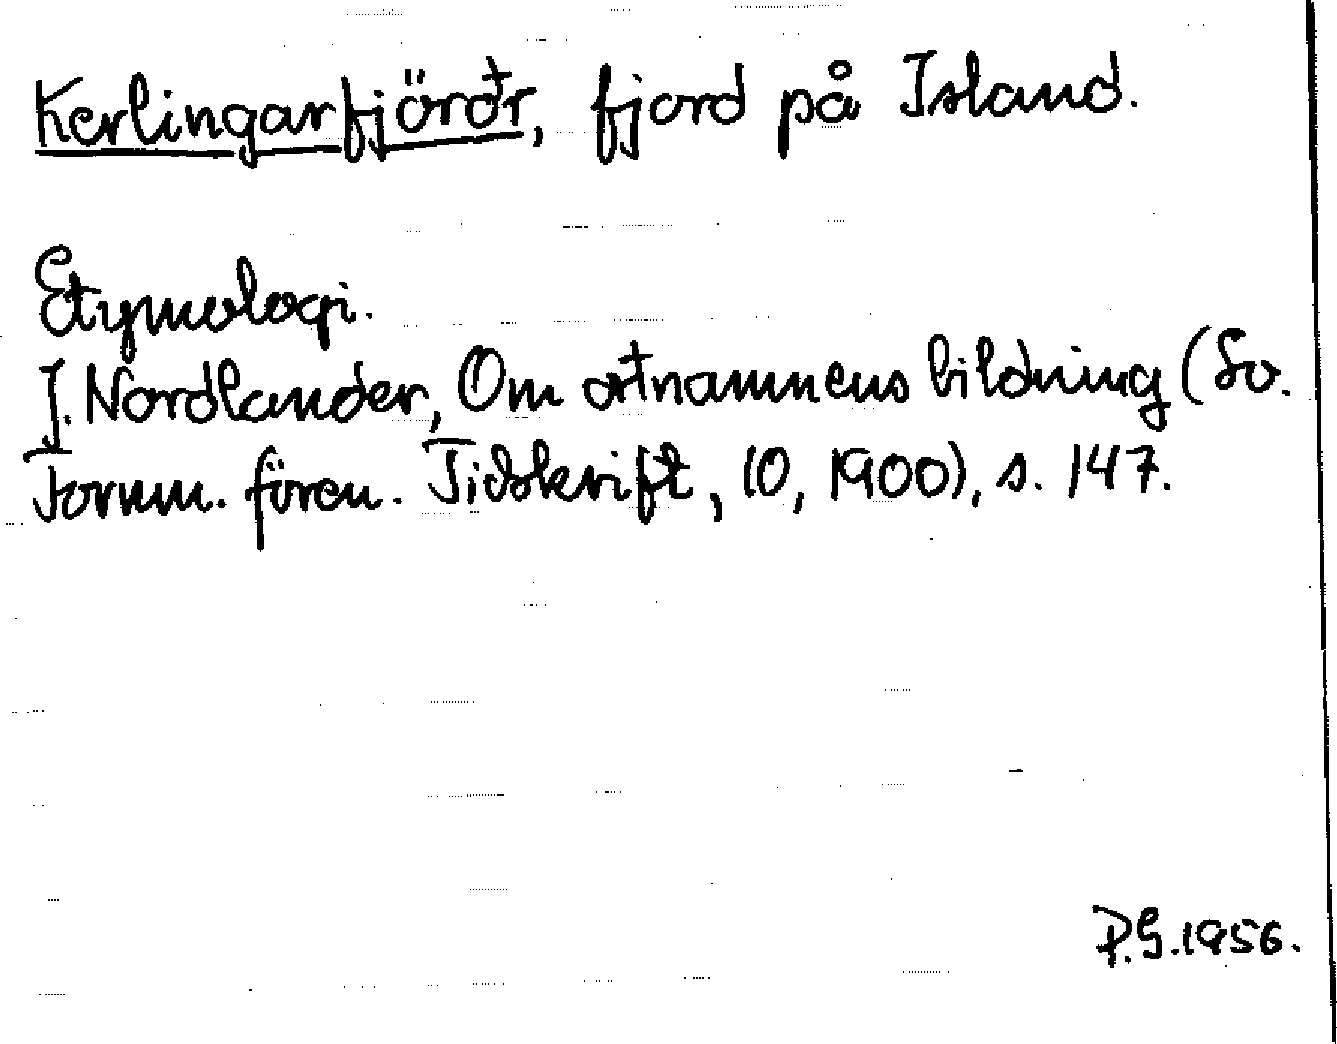 Kerlingarfjörðr, fjord på Island.
Etymologi.
J. Nordlander, Om ortnamnens bildning (Sv.
Fornm. fören. Tidskrift, 10, 1900), s. 147.
P.G. 1956.